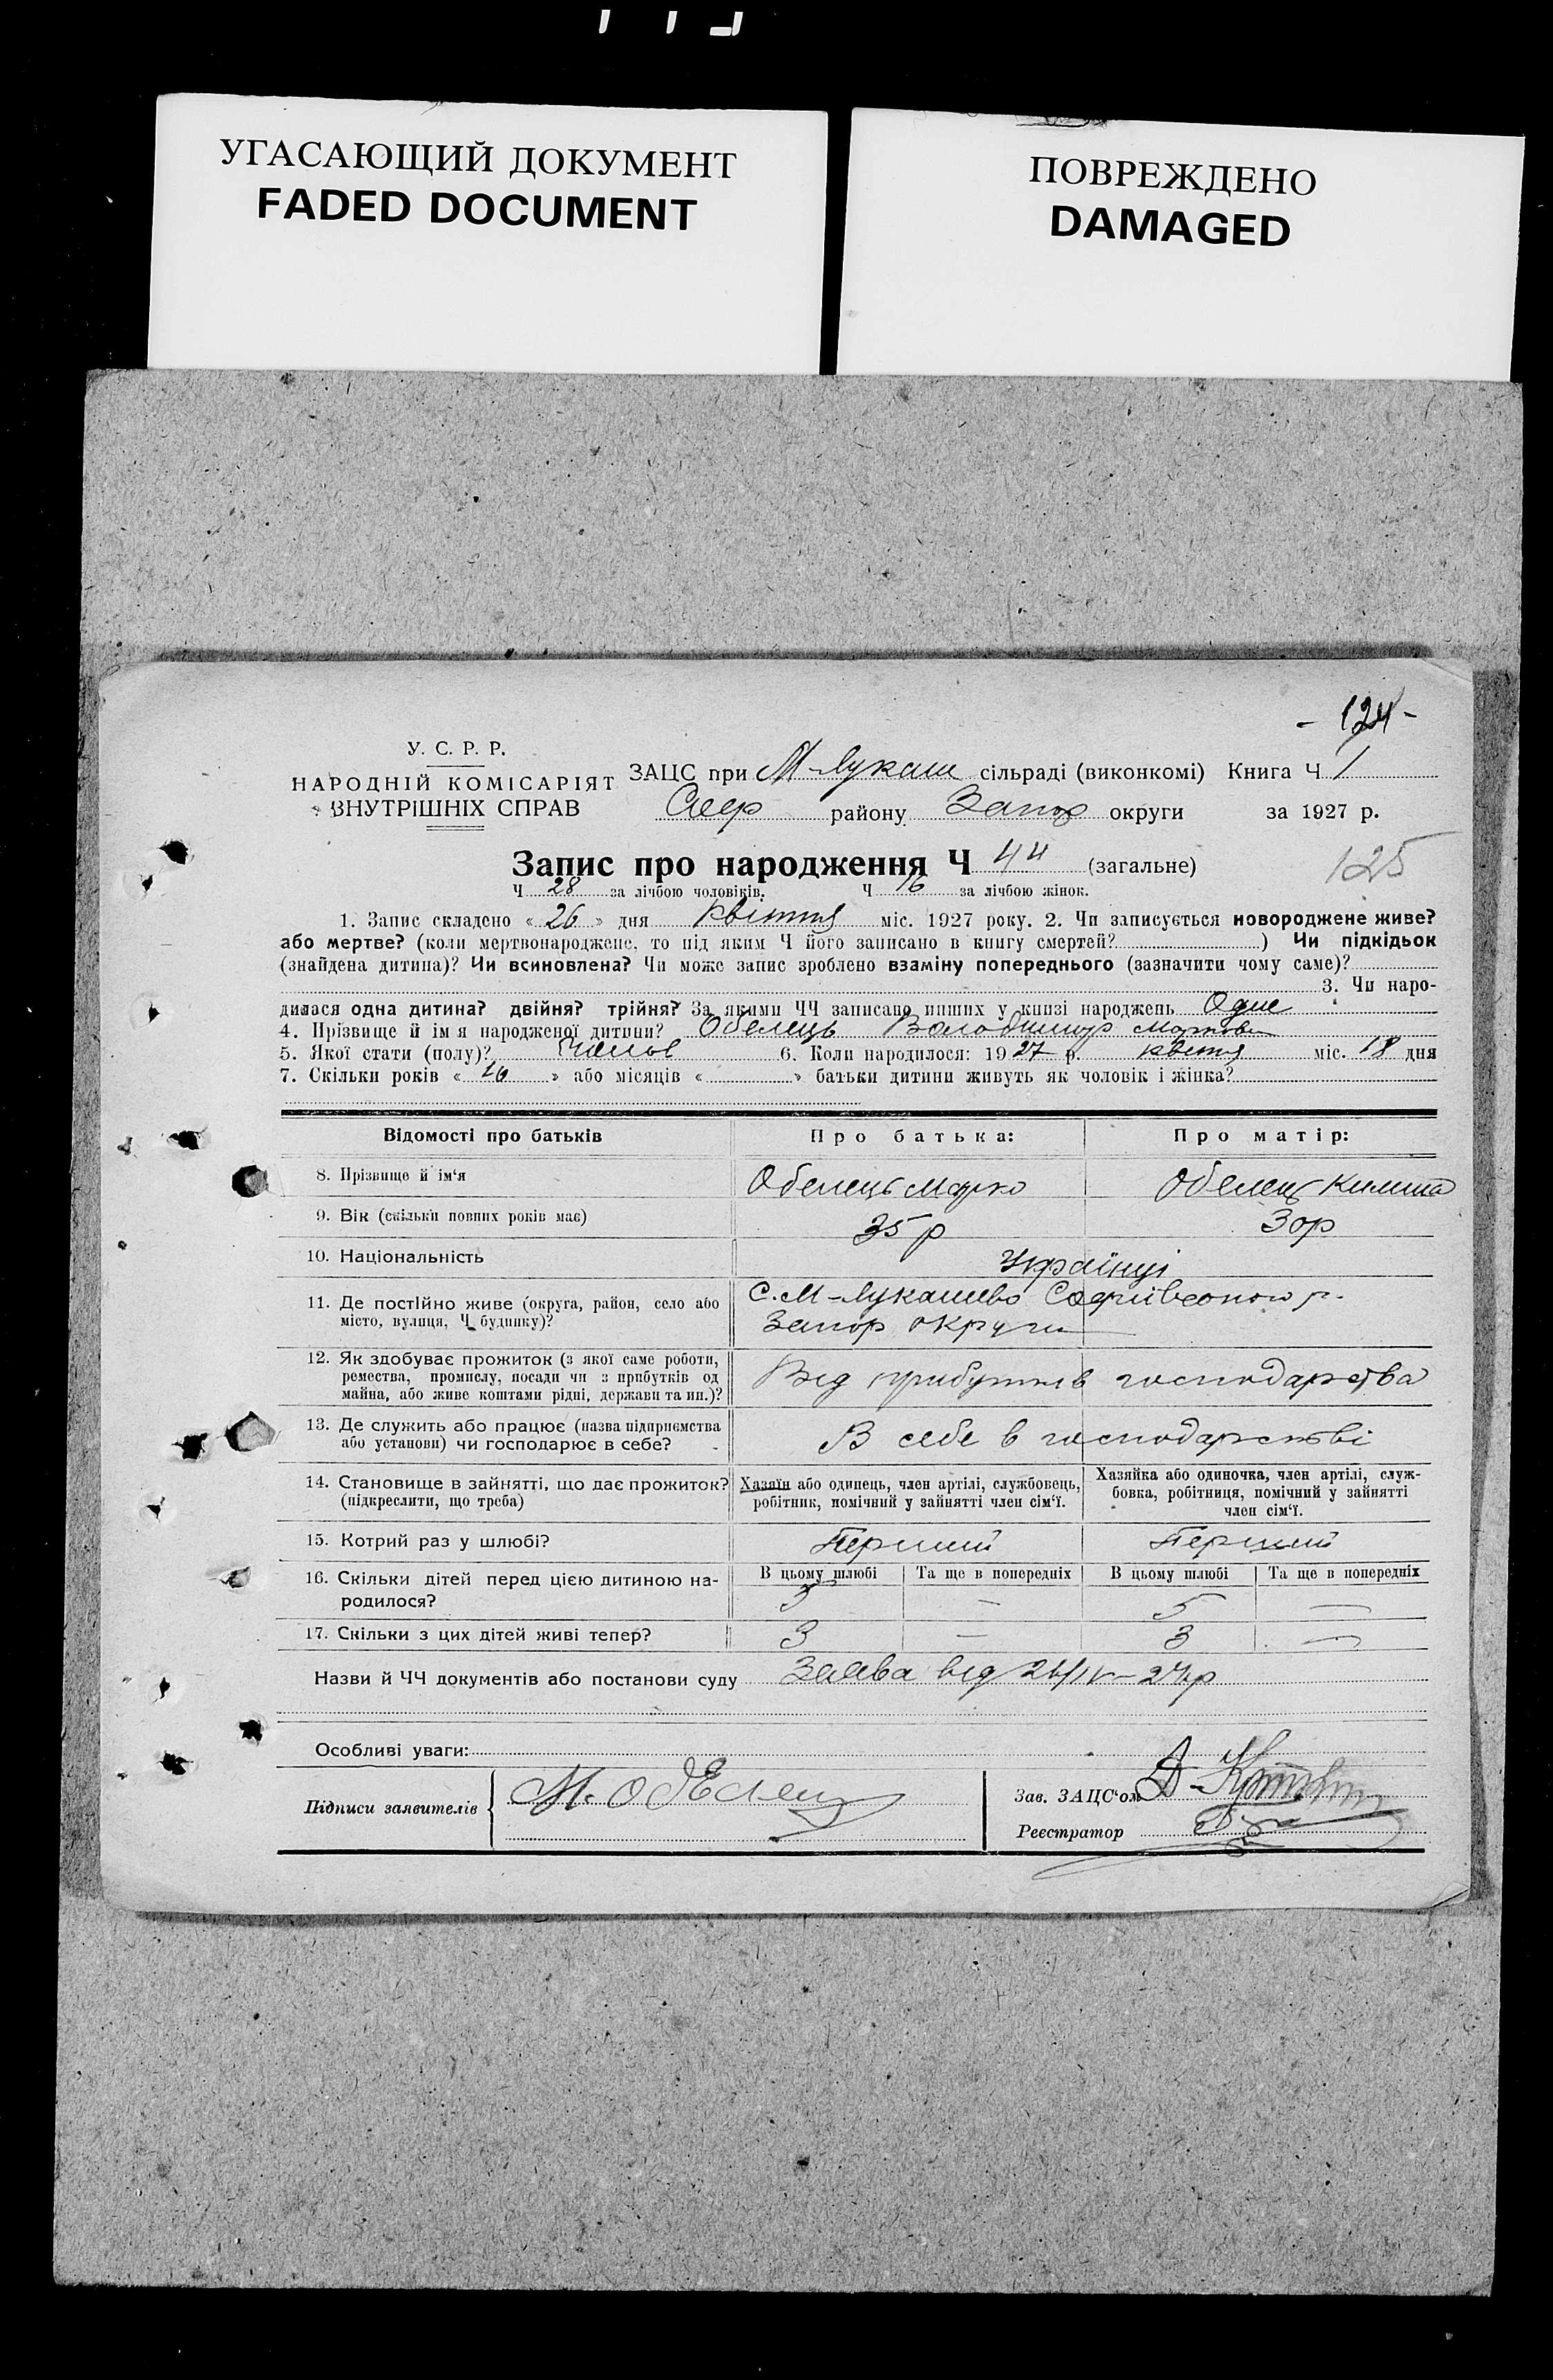 УГАСАЮЩИЙ ДОКУМЕНТ
FADED DOCUMENT
ПОВРЕЖДЕНО
DAMAGED
- 124 -
У. С. Р. Р.
НАРОДНІЙ КОМІСАРІЯТ
ВНУТРІШНІХ СПРАВ
ЗАЦС при М-Лукаш сільраді (виконкомі) Книга Ч 1
району Запор округи за 1927 р.
Запис про народження Ч 44 (загальне)
125
Ч 28 за лічбою чоловіків. Ч 16 за лічбою жінок.
1. Запис складено « 26 » дня квітня міс. 1927 року. 2. Чи записується новороджене живе?
або мертве? (коли мертвонароджене, то під яким Ч його записано в книгу смертей? ) Чи підкідьок
(знайдена дитина)? Чи всиновлена? Чи може запис зроблено взаміну попереднього (зазначити чому саме)?
3. Чи наро-
дилася одна дитина? двійня? трійня? За якими ЧЧ записано инших у книзі народжень Одне
4. Прізвище й ім я народженої дитини? Обелець Володимир Маркович
5. Якої стати (полу)? 6. Коли народилося: 1927 р. квітня міс. 18 дня
7. Скільки років « 16 » або місяців « » батьки дитини живуть як чоловік і жінка?
Відомості про батьків
Про батька:
Про матір:
8. Прізвище й ім‘я Обелець Марко Обелець
9. Вік (скільки повних років має) 35 р 30р
10. Національність Українці
11. Де постійно живе (округа, район, село або
місто, вулиця, Ч будинку)?
С. М-Лукашево Софиївського р.
Запор округи
12. Як здобуває прожиток (з якої саме роботи,
ремества, промислу, посади чи з прибутків од
майна, або живе коштами рідні, держави та ин.)?
Від прибутків господарства
13. Де служить або працює (назва підприємства
або установи) чи господарює в себе?
В себе в господарстві
14. Становище в зайнятті, що дає прожиток?
(підкреслити, що треба)
Хазяїн або одинець, член артілі, службовець,
робітник, помічний у зайнятті член сім‘ї.
Хазяйка або одиночка, член артілі, служ-
бовка, робітниця, помічний у зайнятті
член сім‘ї.
15. Котрий раз у шлюбі? Перший Перший
16. Скільки дітей перед цією дитиною на-
родилося?
В цьому шлюбі Та ще в попередніх В цьому шлюбі Та ще в попередніх
5 — 5 —
17. Скільки з цих дітей живі тепер? 3 — 3 —
Назви й ЧЧ документів або постанови суду Заява від 26/IV-27р
Особливі уваги:
Підписи заявителів М. Обелец
Зав. ЗАЦС‘ом
Реєстратор